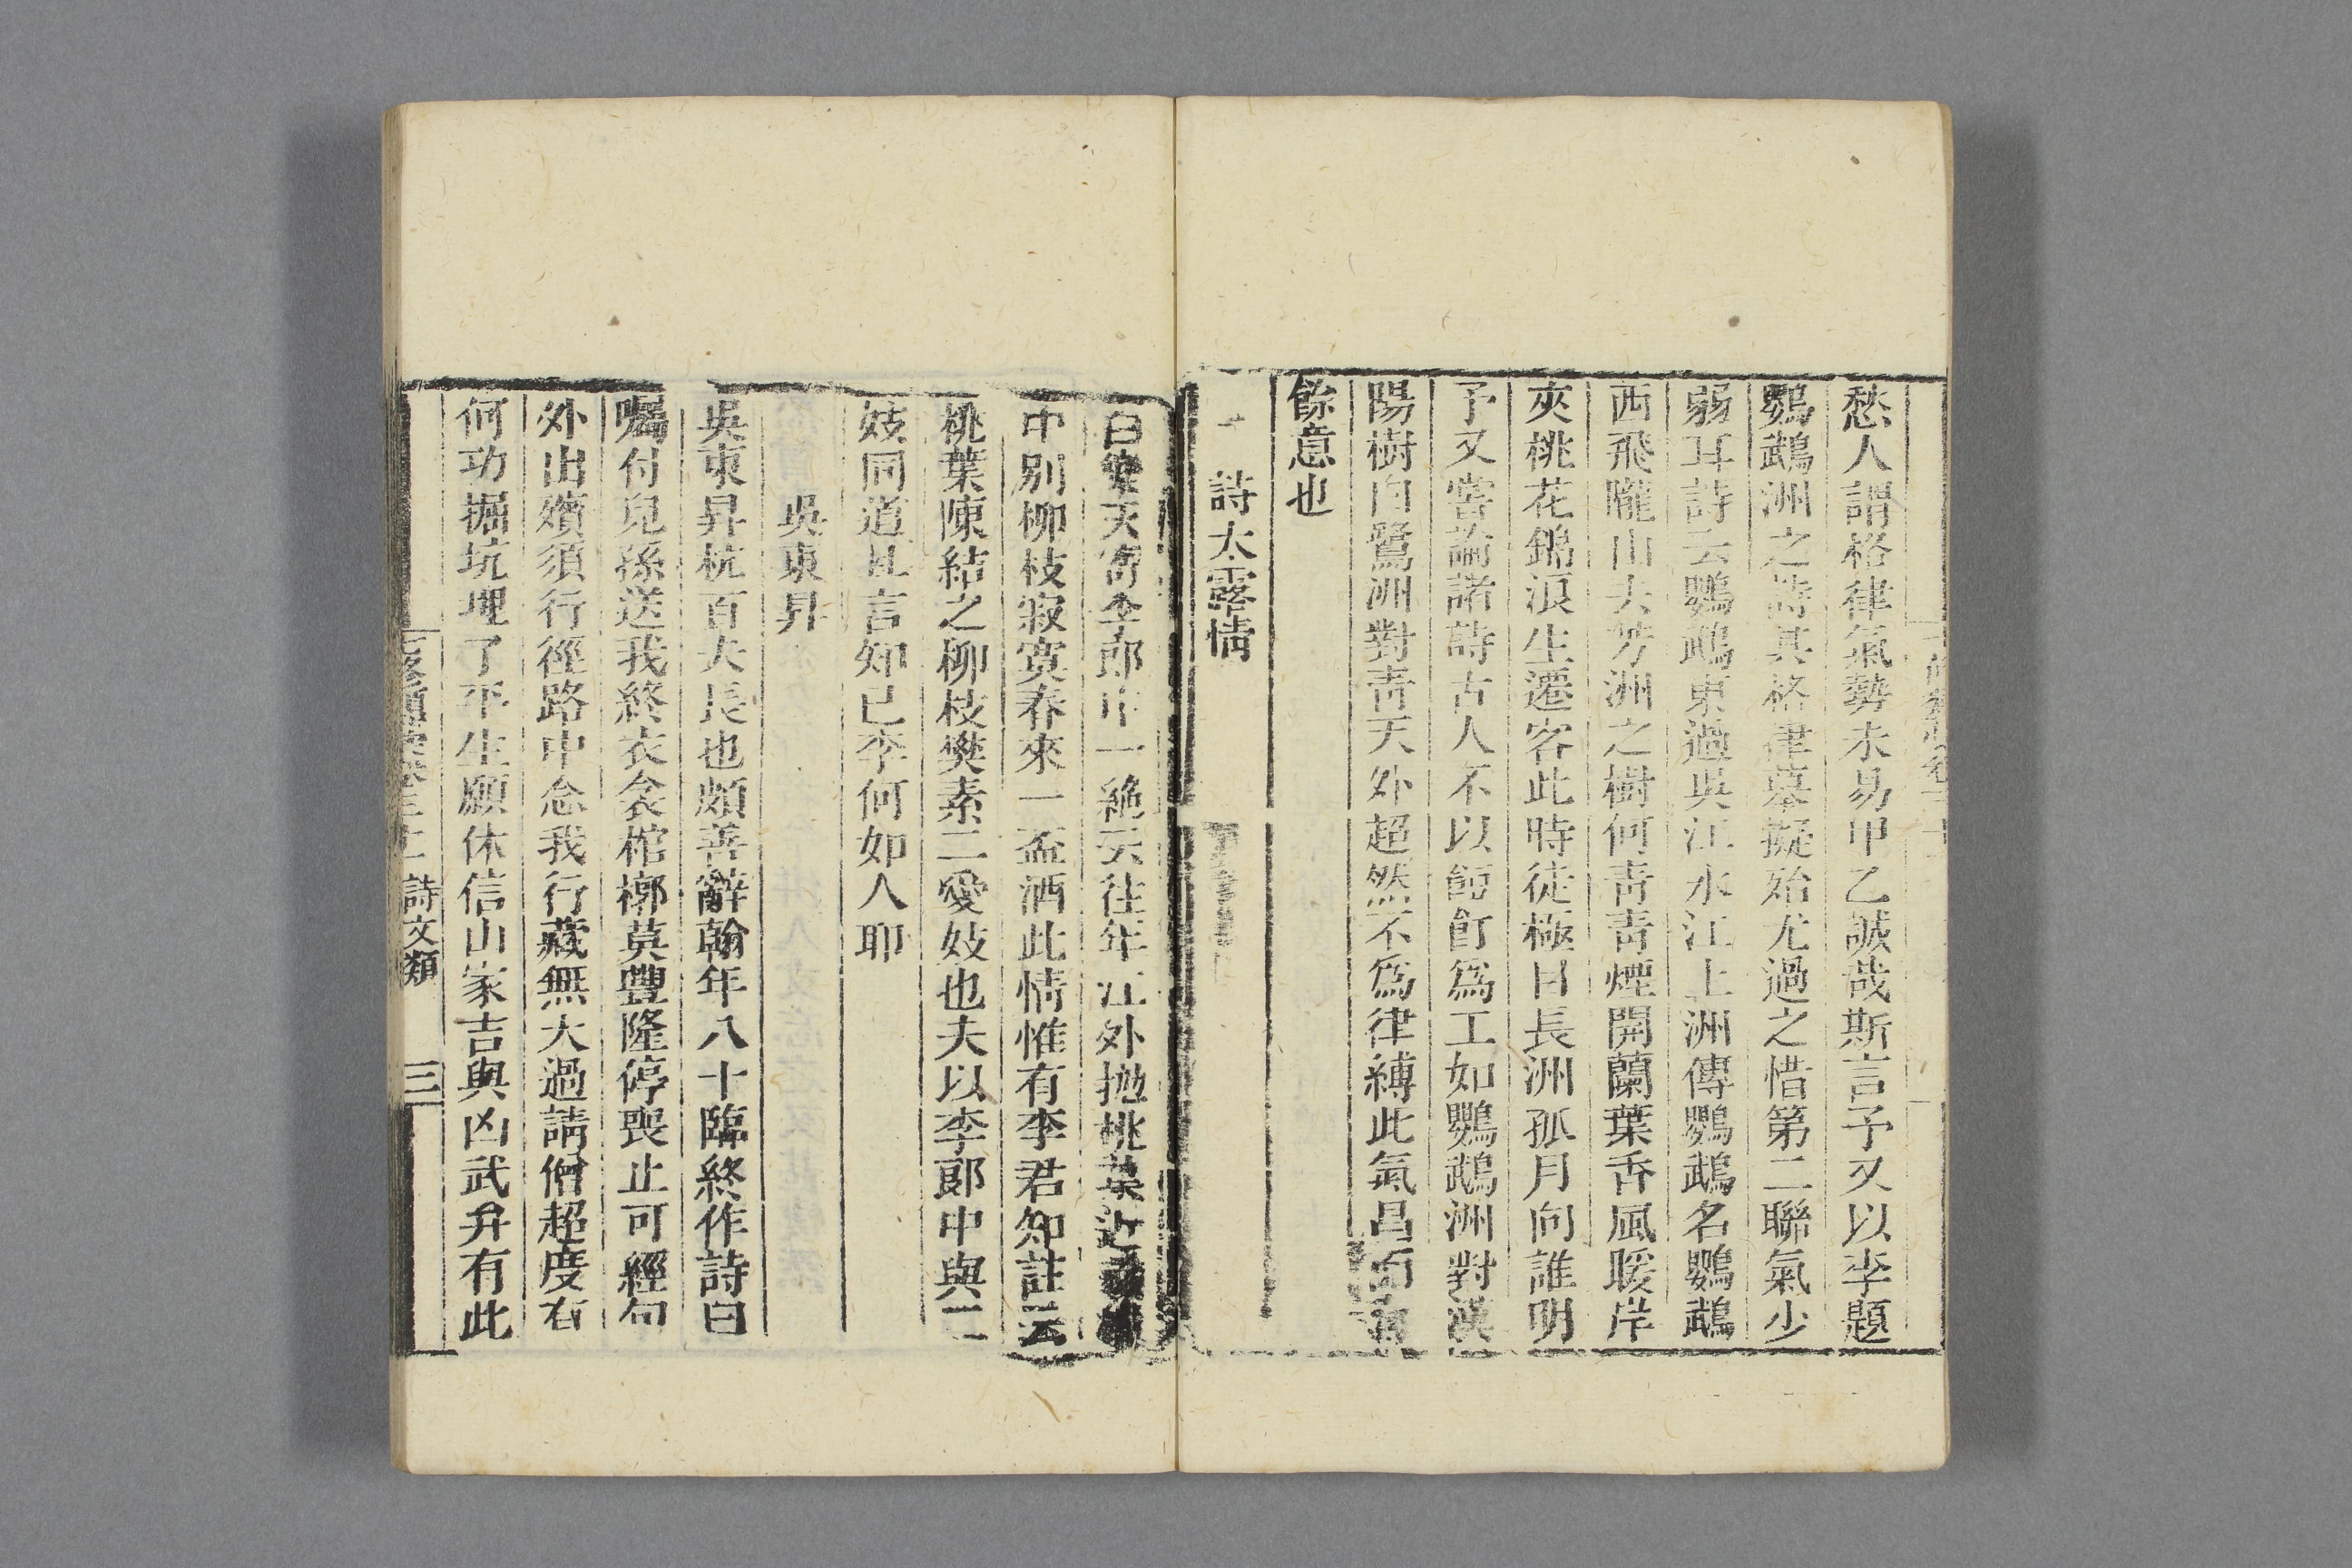 愁人謂格律氣勢未易甲乙誠哉斯言予又以李題
鸚鵡洲之詩其格律摹擬殆尤過之惜第二聯氣少
弱耳詩云鸚鵡東過吳江水江上洲傳鸚鵡名鸚鵡
西飛隴山去芳洲之樹何青青煙開蘭葉香風暖岸
夾桃花錦浪生遷客此時徒極目長洲孤月向誰明
予又嘗論諸詩古人不以飣飣為工如鸚鵡洲對漢
陽樹白鷺洲對青天外超然不為律縛此氣昌而有
餘意也
詩太露情
白樂天寄李郎中一絕云往年江外拋桃葉近
中別柳枝寂寞春來一盃酒此情惟有李君知註云
桃葉陳結之柳枝樊素二愛妓也夫以李郎中與二
妓同道且言知己李何如人耶
吳東昇
吳東昇杭百夫長也頗善辭翰年八十臨終作詩曰
囑付兒孫送我終衣衾棺槨莫豐隆停喪止可經旬
外出殯須行徑路中念我行藏無大過請僧超度有
何功掘坑埋了平生願休信山家吉與凶武弁有此
七修類稾卷三十 詩文類 三